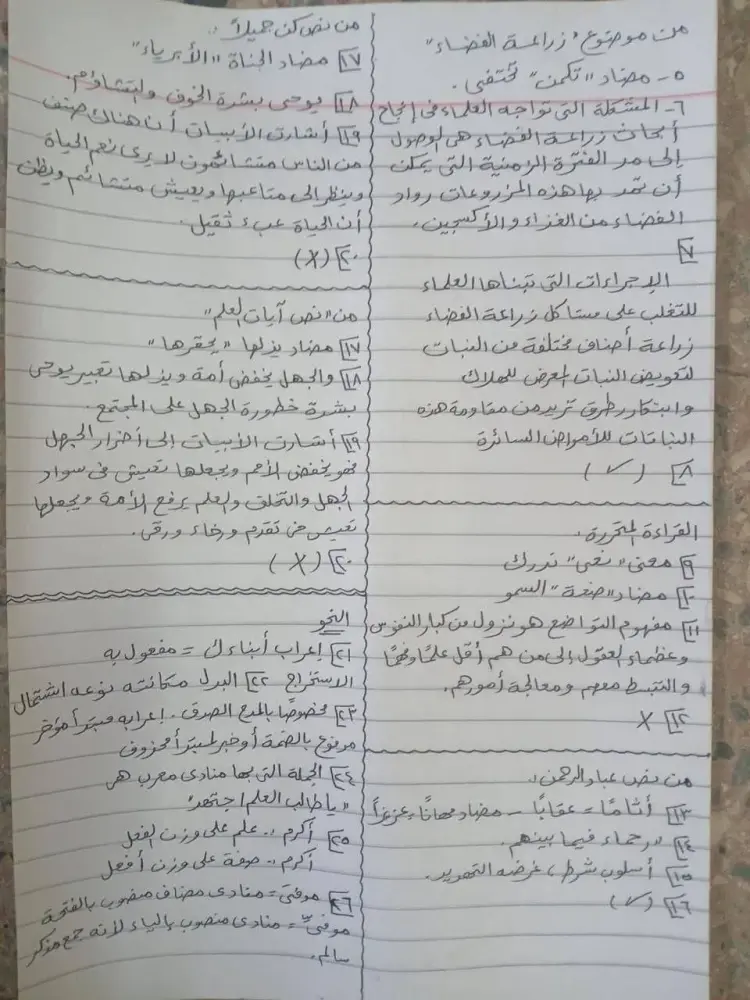 من موضوع "زراعة الفضاء"
٥- مضاد "تكمن" تختفى.
٦- المشكلة التى تواجه العلماء فى إنجاح
أبحاث زراعة الفضاء هى الوصول
إلى مد الفترة الزمنية التى يمكن
أن تمد بها هذه المزروعات رواد
الفضاء من الغذاء والأكسجين.
٧
الإجراءات التى تبناها العلماء
للتغلب على مشاكل زراعة الفضاء
زراعة أصناف مختلفة من النبات
لتعويض النبات المعرض للهلاك
وابتكار طرق تزيد من مقاومة هذه
النباتات للأمراض السائرة
٨ (✓)
القراءة المتحررة.
٩ معنى "نعى" ندرك
١٠ مضاد "ضعة" السمو
١١ مفهوم التواضع هو نزول من كبار النفوس
وعظماء العقول إلى من هم أقل علمًا وفهمًا
والتبسط معهم ومعالجة أمورهم.
١٢ X
من نص عباد الرحمن:
١٣ أثامًا = عقابًا - مضاد مهانًا = عزيزاً
١٤ "رحماء فيما بينهم.
١٥ أسلوب شرط، غرضه التهديد.
١٦ (✓)
من نص كن جميلاً:
١٧ مضاد الجناة "الأبرياء"
١٨ يوحى بشدة الخوف والتشاؤم.
١٩ أشارت الأبيات أن هناك صنف
من الناس متشائمون لا يرى نعم الحياة
وينظر إلى متاعبها ويعيش متشائم ويظن
أن الحياة عبء ثقيل.
٢٠ (X)
من "نص آيات العلم"
١٧ مضاد يذلها "يحقرها"
١٨ والجهل يخفض أمة ويذلها تعبير يوحى
بشدة خطورة الجهل على المجتمع.
١٩ أشارت الأبيات إلى أضرار الجهل
فهو يخفض الأمم ويجعلها تعيش فى سواد
الجهل والتخلف والعلم يرفع الأمة ويجعلها
تعيش فى تقدم ورخاء ورقى.
٢٠ (X)
النحو
٢١ إعراب أبناءك = مفعول به
الاستخراج ٢٢ البدل مكانته نوعه اشتمال
٢٣ مخصوصًا بالمدح الصدق. إعرابه مبتدأ مؤخر
مرفوع بالضمة أو خبر لمبتدأ محذوف
٢٤ الجملة التى بها منادى معرب هى
"يا طالب العلم اجتهد"
٢٥ أكرم: علم على وزن الفعل
أكرم: صفة على وزن أفعل
٢٦ موفقى = منادى مضاف منصوب بالفتحة
موفقىّ = منادى منصوب بالياء لأنه جمع مذكر
سالم.